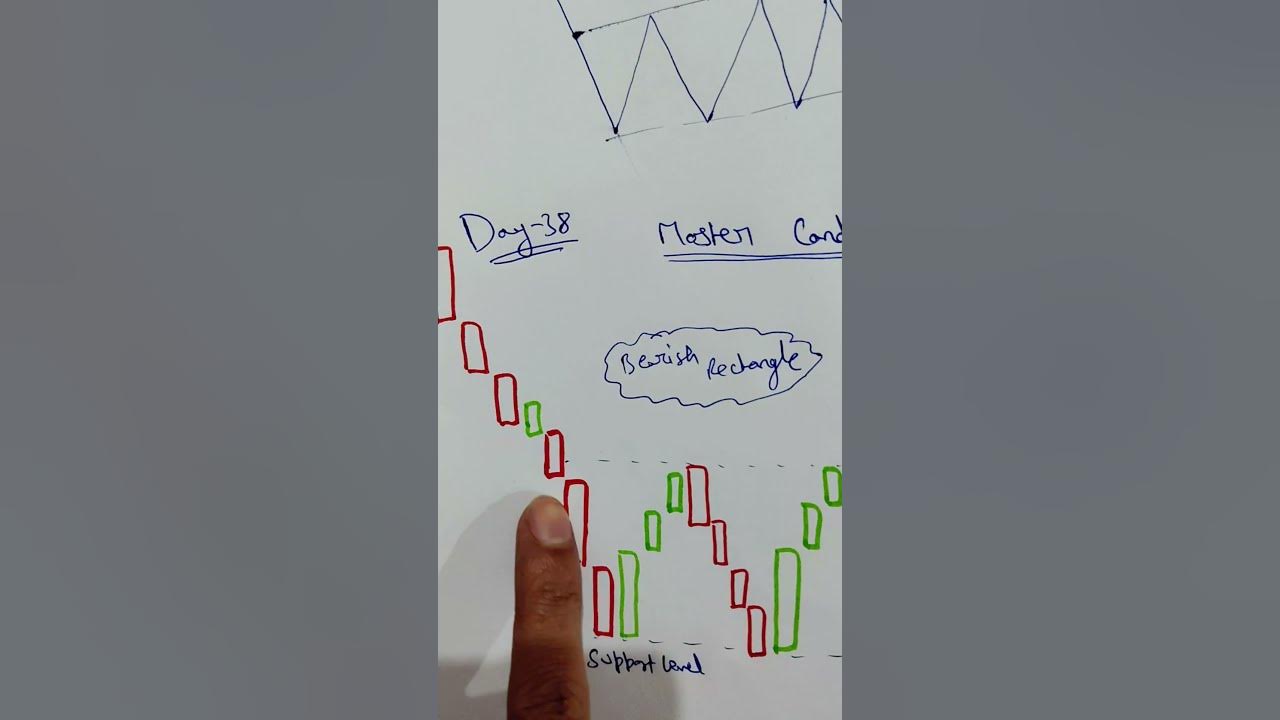 Day-38
Master Cand
Bearish Rectangle
Support Level